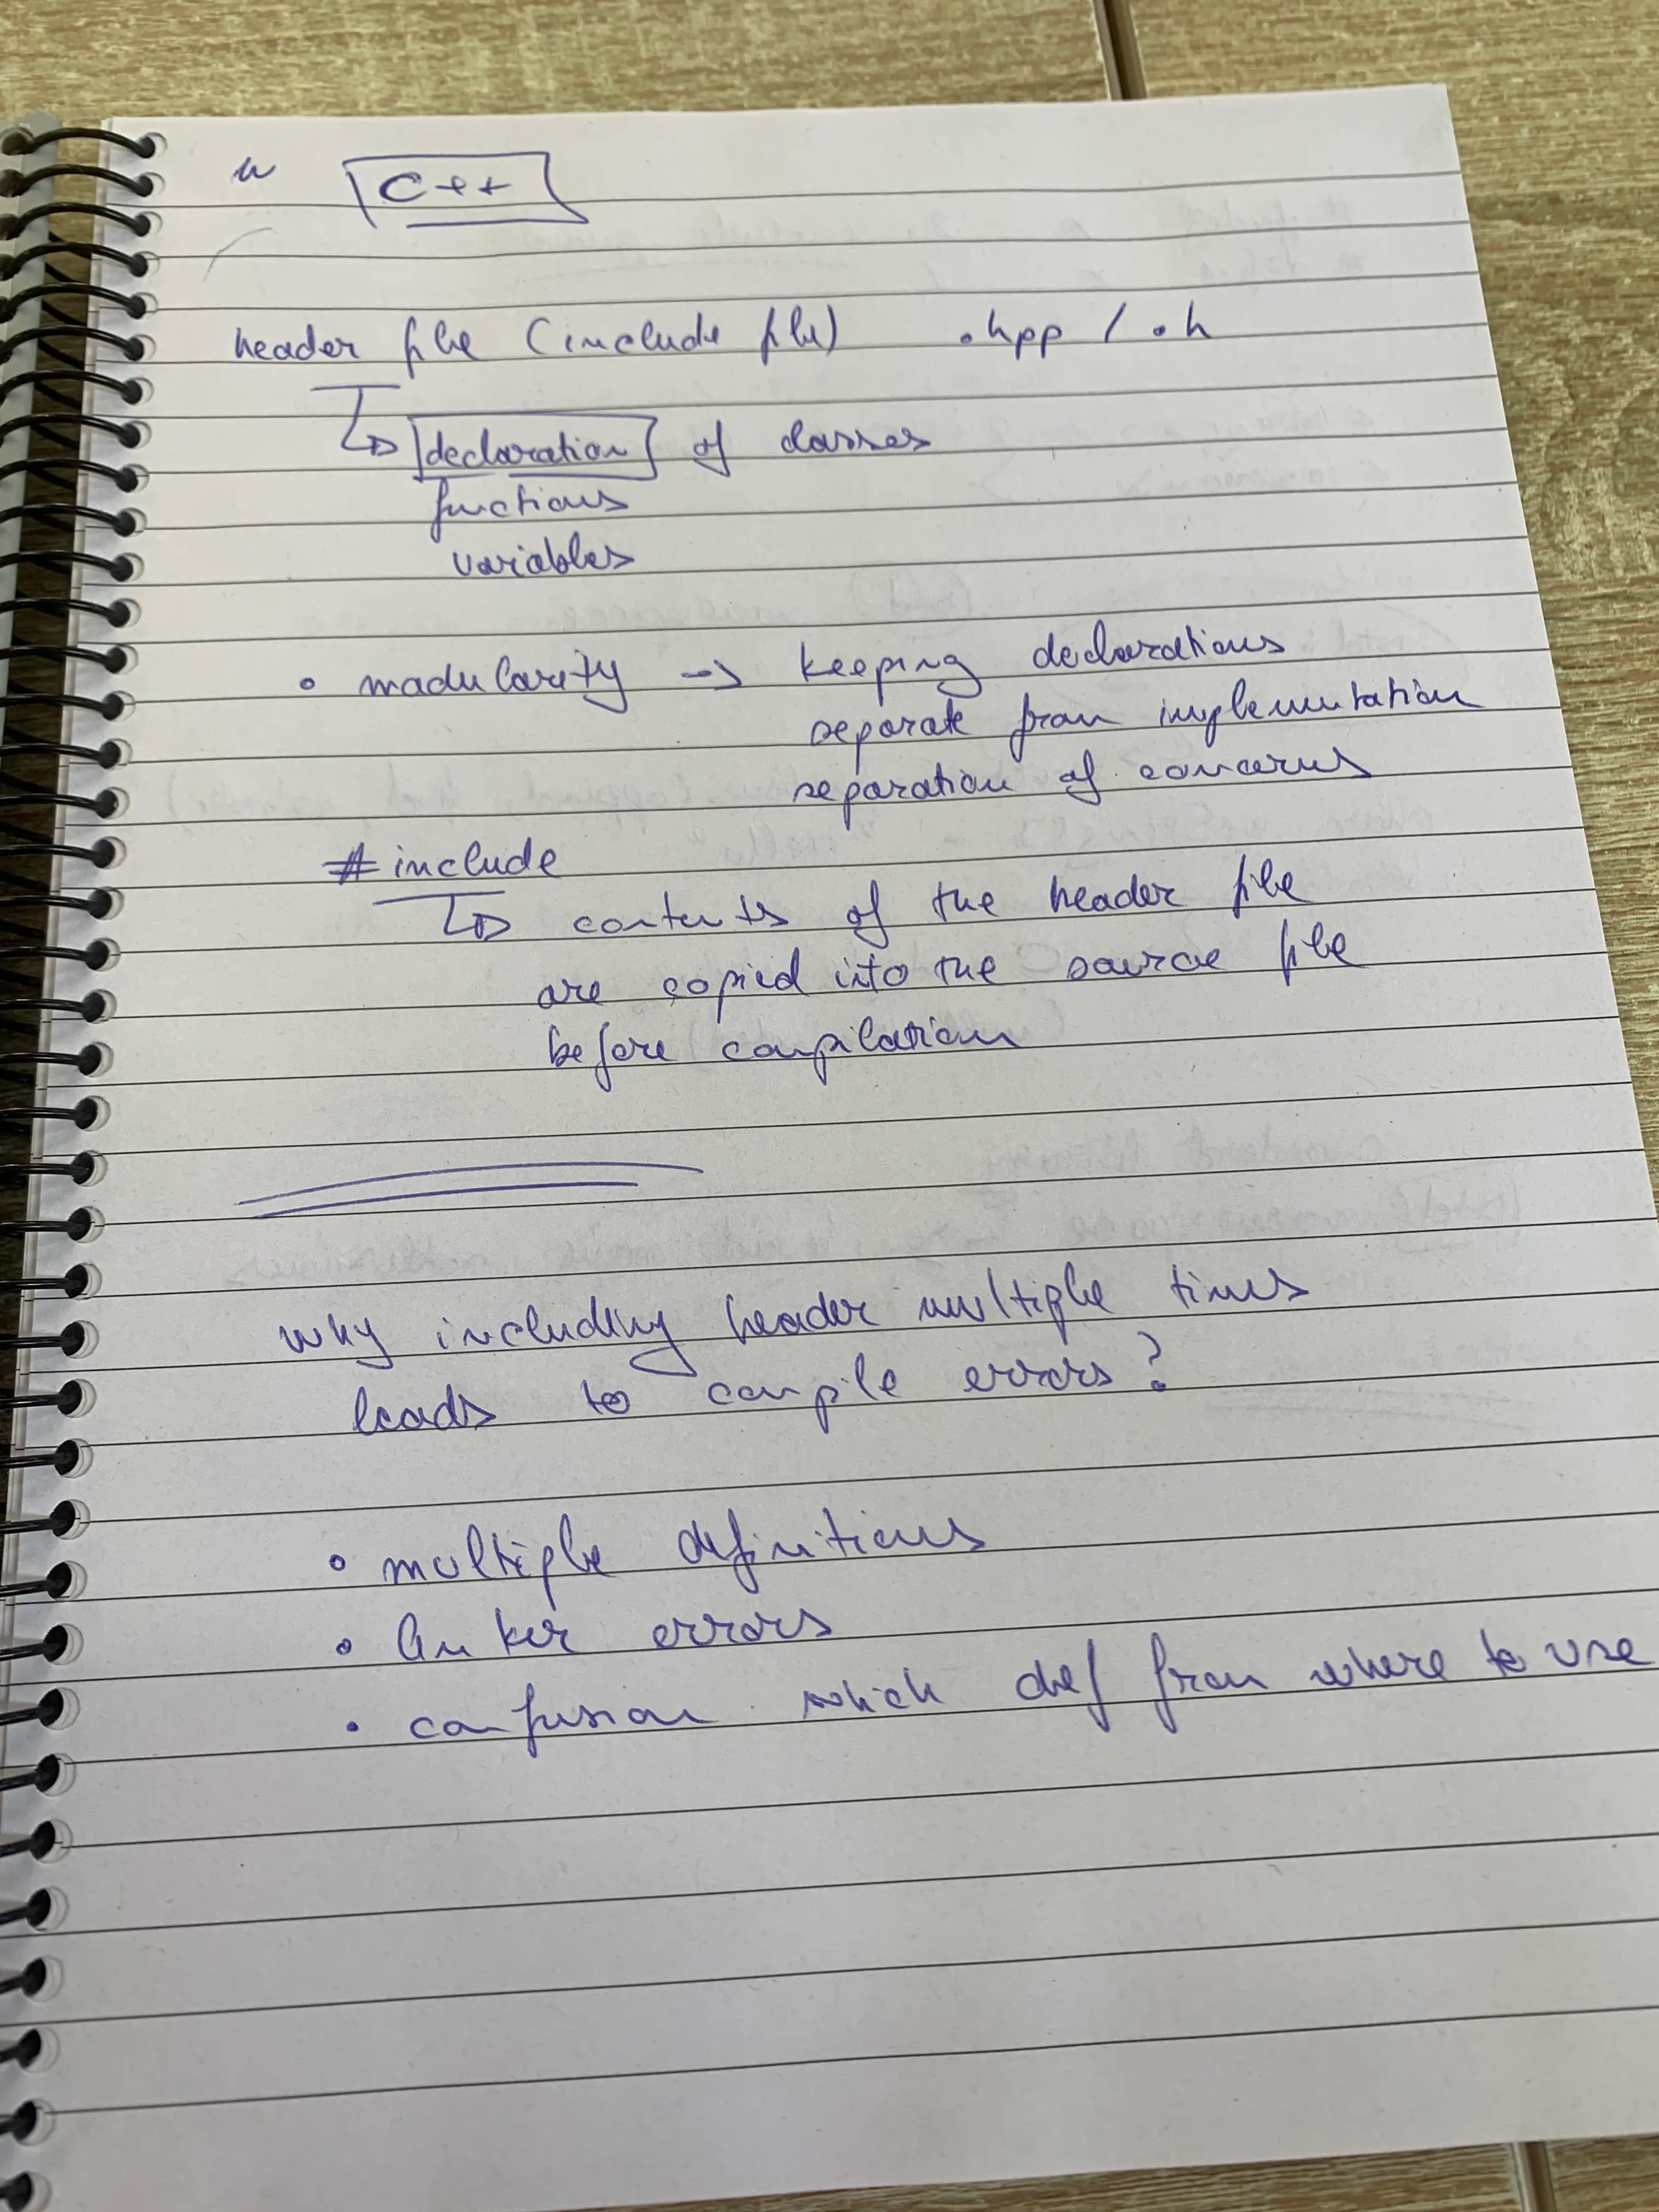 C++
header file (include file) .hpp / .h
declaration of classes
functions
variables
• modularity -> keeping declarations
separate from implementation
separation of concerns
#include
contents of the header file
are copied into the source file
before compilation
why including header multiple times
leads to compile errors?
• multiple definitions
• linker errors
• confusion which def from where to use